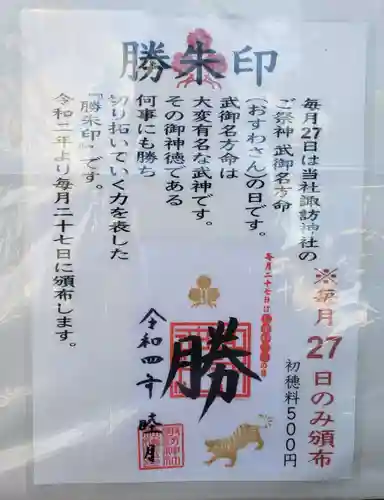 勝朱印
毎月27日は当社諏訪神社の
ご祭神 武御名方命
(おすわさん)の日です。
武御名方命は
大変有名な武神です。
その御神徳である
何事にも勝ち
切り拓いていく力を表した
『勝朱印』です。
令和二年より毎月二十七日に頒布します。
※毎月27日のみ頒布
初穂料500円
毎月二十七日は
の日
勝
令和四年
睦月